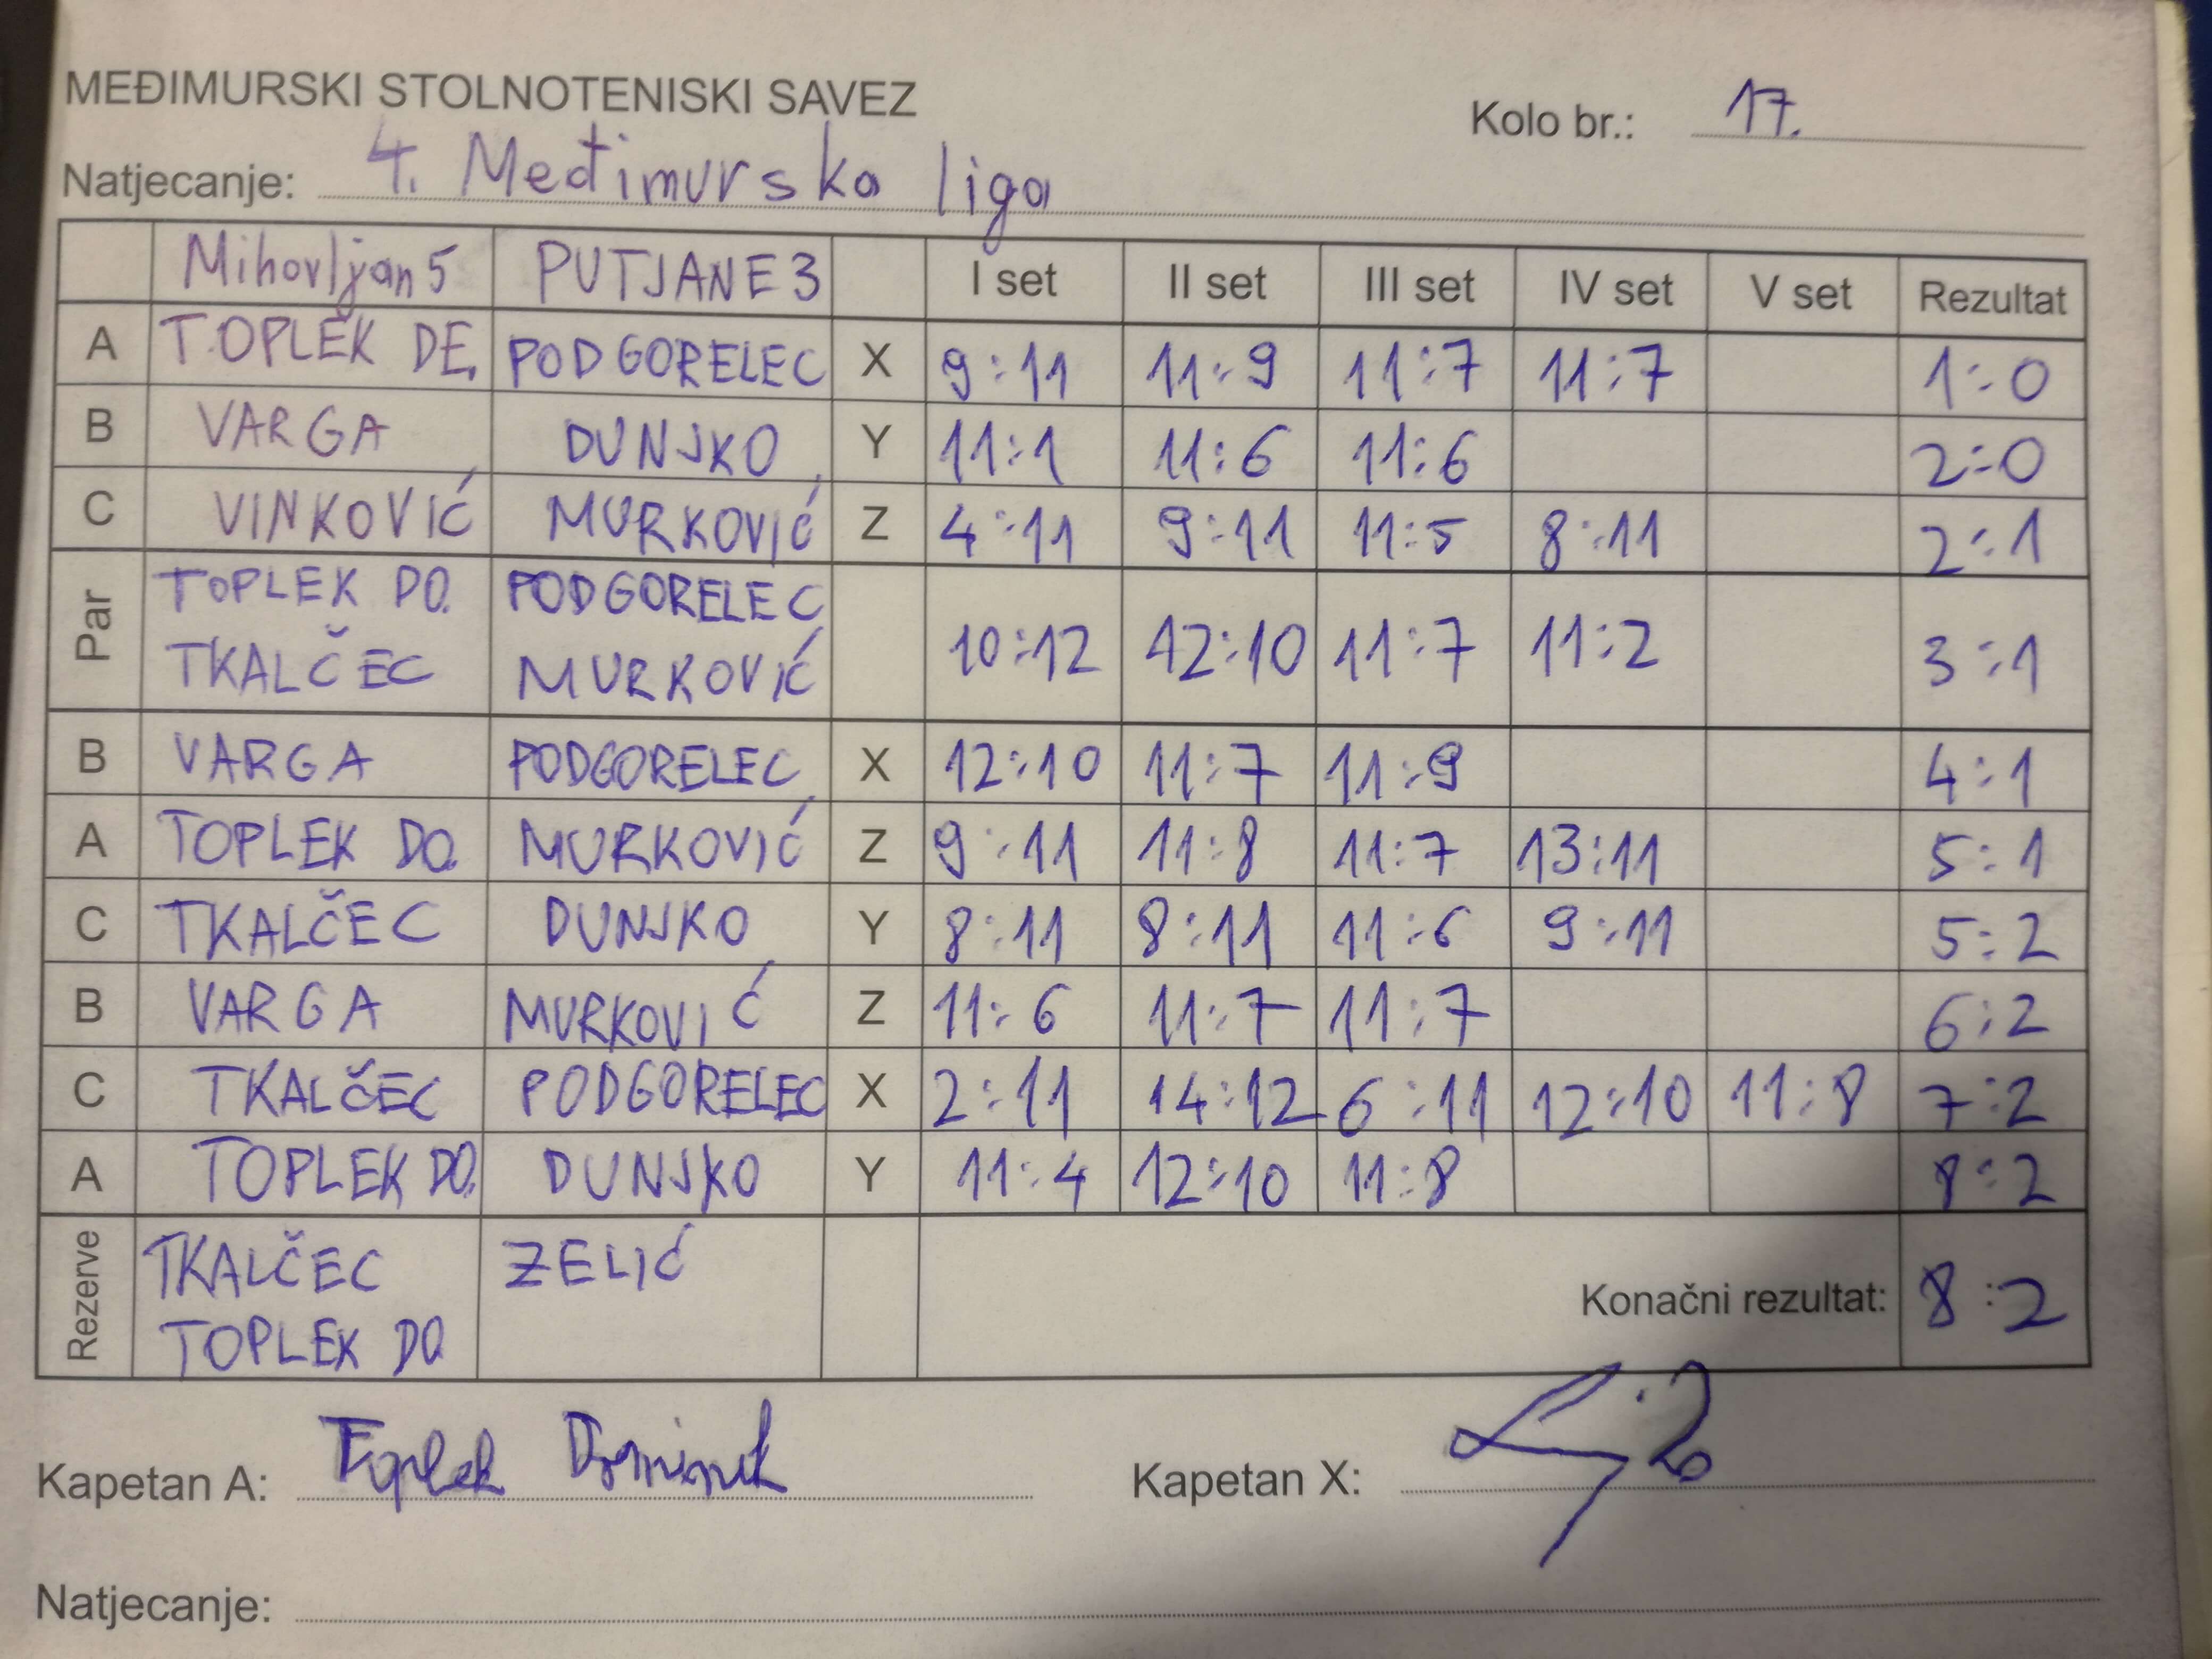 MEĐIMURSKI STOLNOTENISKI SAVEZ
Kolo br.: 17.
Natjecanje: 4. Međimurska liga
Mihovljan 5 PUTJANE 3 I set II set III set IV set V set Rezultat
A TOPLEK DE. PODGORELEC X 9:11 11:9 11:7 11:7 1:0
B VARGA DUNJKO Y 11:1 11:6 11:6 2:0
C VINKOVIĆ MURKOVIĆ Z 4:11 9:11 11:5 8:11 2:1
Par TOPLEK DO. PODGORELEC
TKALČEC MURKOVIĆ 10:12 12:10 11:7 11:2 3:1
B VARGA PODGORELEC X 12:10 11:7 11:9 4:1
A TOPLEK DO. MURKOVIĆ Z 9:11 11:8 11:7 13:11 5:1
C TKALČEC DUNJKO Y 8:11 8:11 11:6 9:11 5:2
B VARGA MURKOVIĆ Z 11:6 11:7 11:7 6:2
C TKALČEC PODGORELEC X 2:11 14:12 6:11 12:10 11:8 7:2
A TOPLEK DO. DUNJKO Y 11:4 12:10 11:8 8:2
Rezerve TKALČEC ZELIĆ
TOPLEK DO
Konačni rezultat: 8:2
Kapetan A: Toplek Dominik
Kapetan X:
Natjecanje: